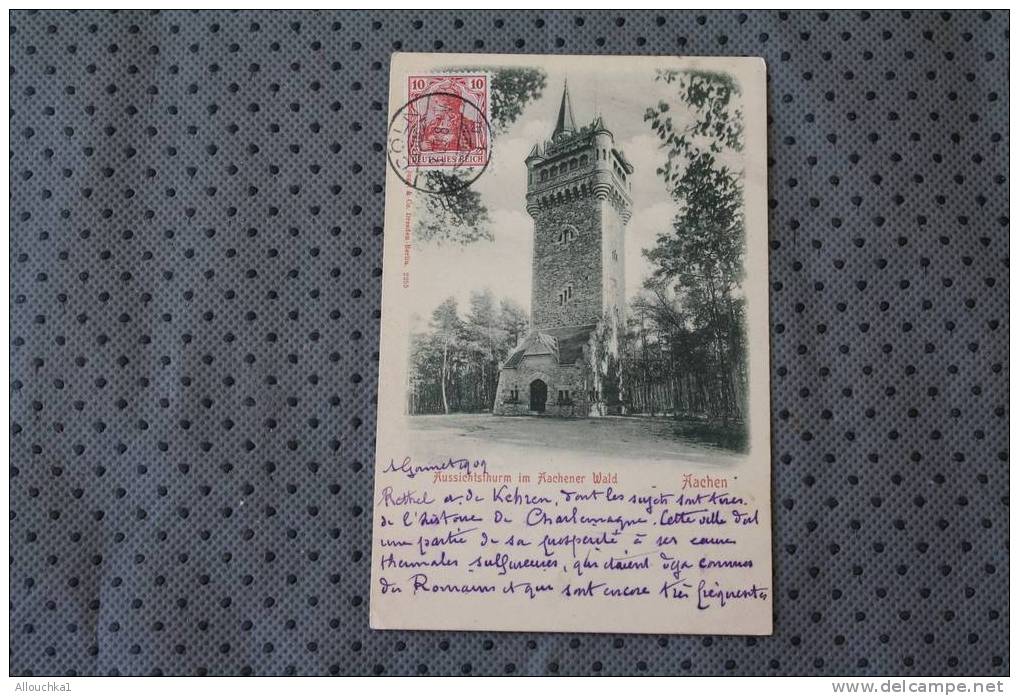 10 10
DEUTSCHES REICH
CÖLN
& Co. Dresden-Berlin. 2255
1909
Aussichtsthurm im Aachener Wald Aachen
Rethel et de Kehren, dont les sujets sont tirés
de l'histoire de Charlemagne. Cette ville doit
une partie de sa prospérité à ses eaux
thermales sulfureuses, qui étaient déja connues
des Romains et qui sont encore très fréquentées
Allouchka1
www.delcampe.net